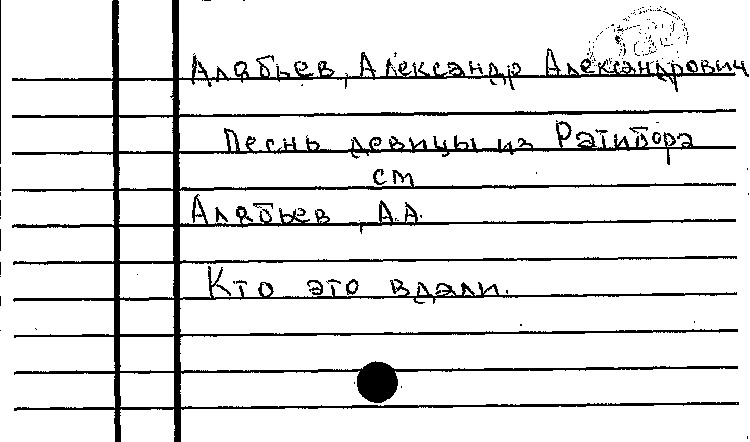 Алябьев, Александр Александрович
Песнь девицы из Ратибора
см
Алябьев, А.А.
Кто это вдали.